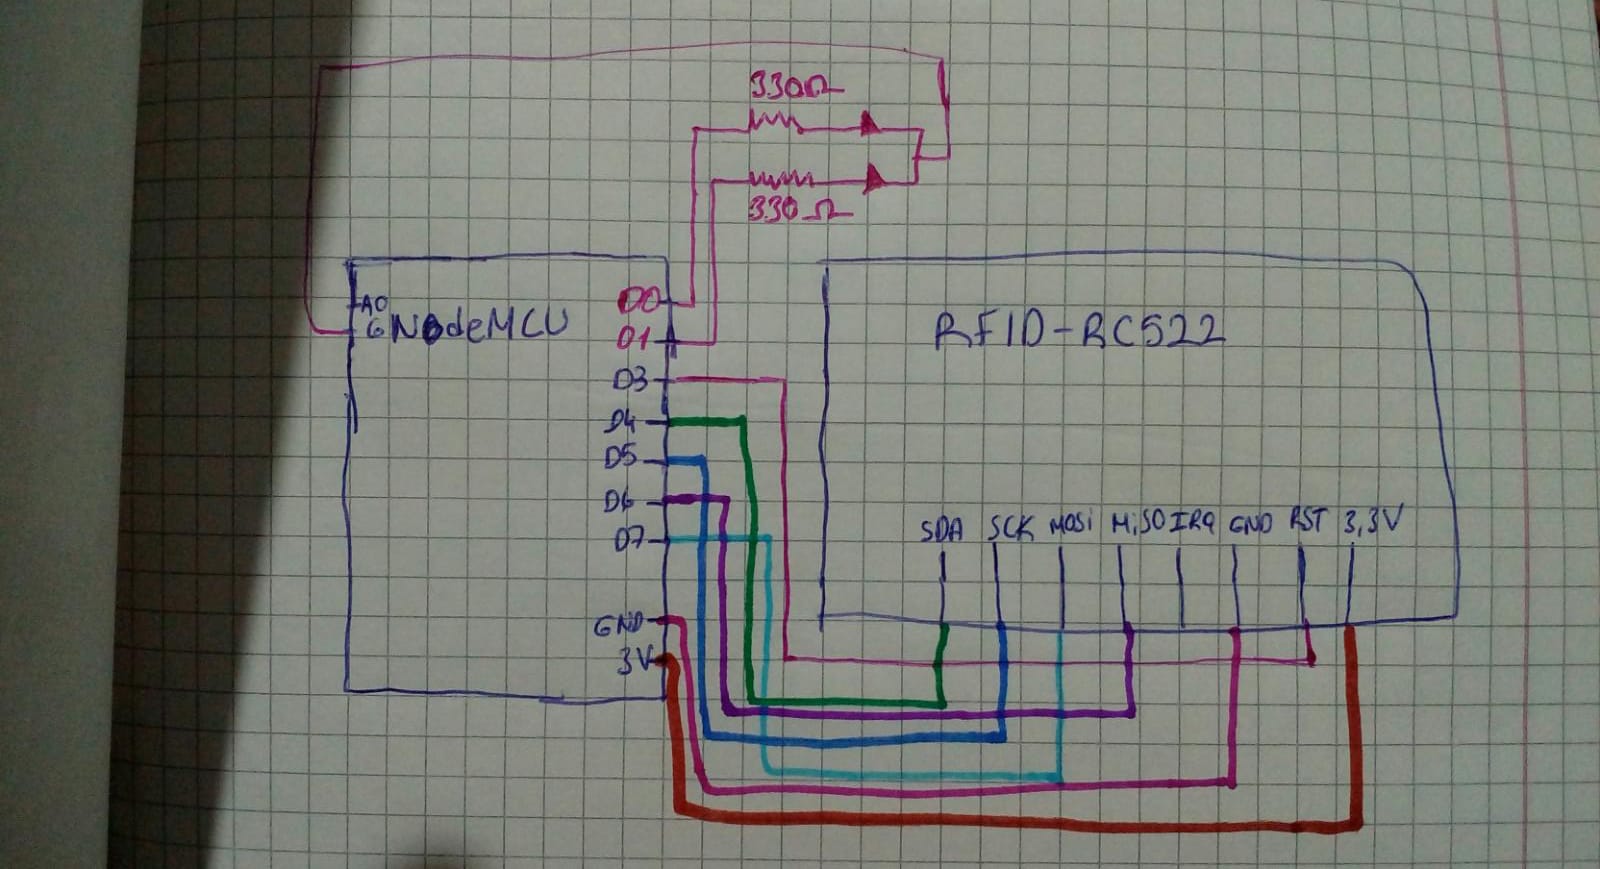 330Ω
330Ω
A0
G NodeMCU
D0
D1
D3
D4
D5
D6
D7
GND
3V
RFID-RC522
SDA SCK MOSi MiSO IRQ GND RST 3,3V